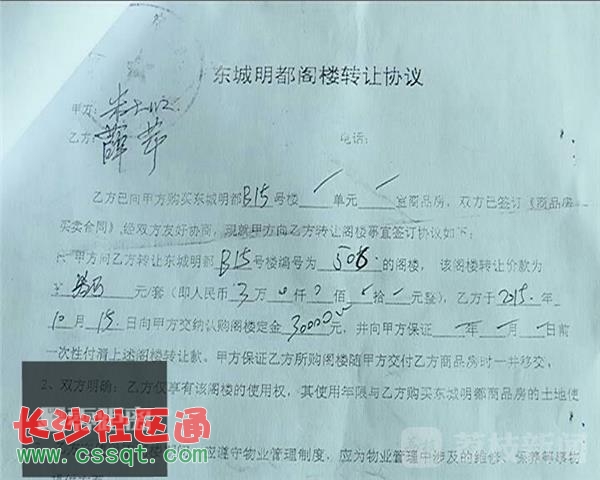 东城明都阁楼转让协议
甲方:
乙方: 薛苹 电话:
乙方已向甲方购买东城明都B15号楼 单元 室商品房,双方已签订《商品房
买卖合同》,经双方友好协商,现就甲方向乙方转让阁楼事宜签订协议如下:
甲方向乙方转让东城明都B15号楼编号为506的阁楼,该阁楼转让价款为
元/套(即人民币3万0仟0佰 拾 元整),乙方于2015年
10月15日向甲方交纳认购阁楼定金30000元,并向甲方保证 年 月 日前
一次性付清上述阁楼转让款。甲方保证乙方所购阁楼随甲方交付乙方商品房时一并移交。
2、双方明确:乙方仅享有该阁楼的使用权,其使用年限与乙方购买东城明都商品房的土地使
长沙社区通
www.cssqt.com
应遵守物业管理制度,应为物业管理中涉及的维修、保养等事物
荔枝新闻